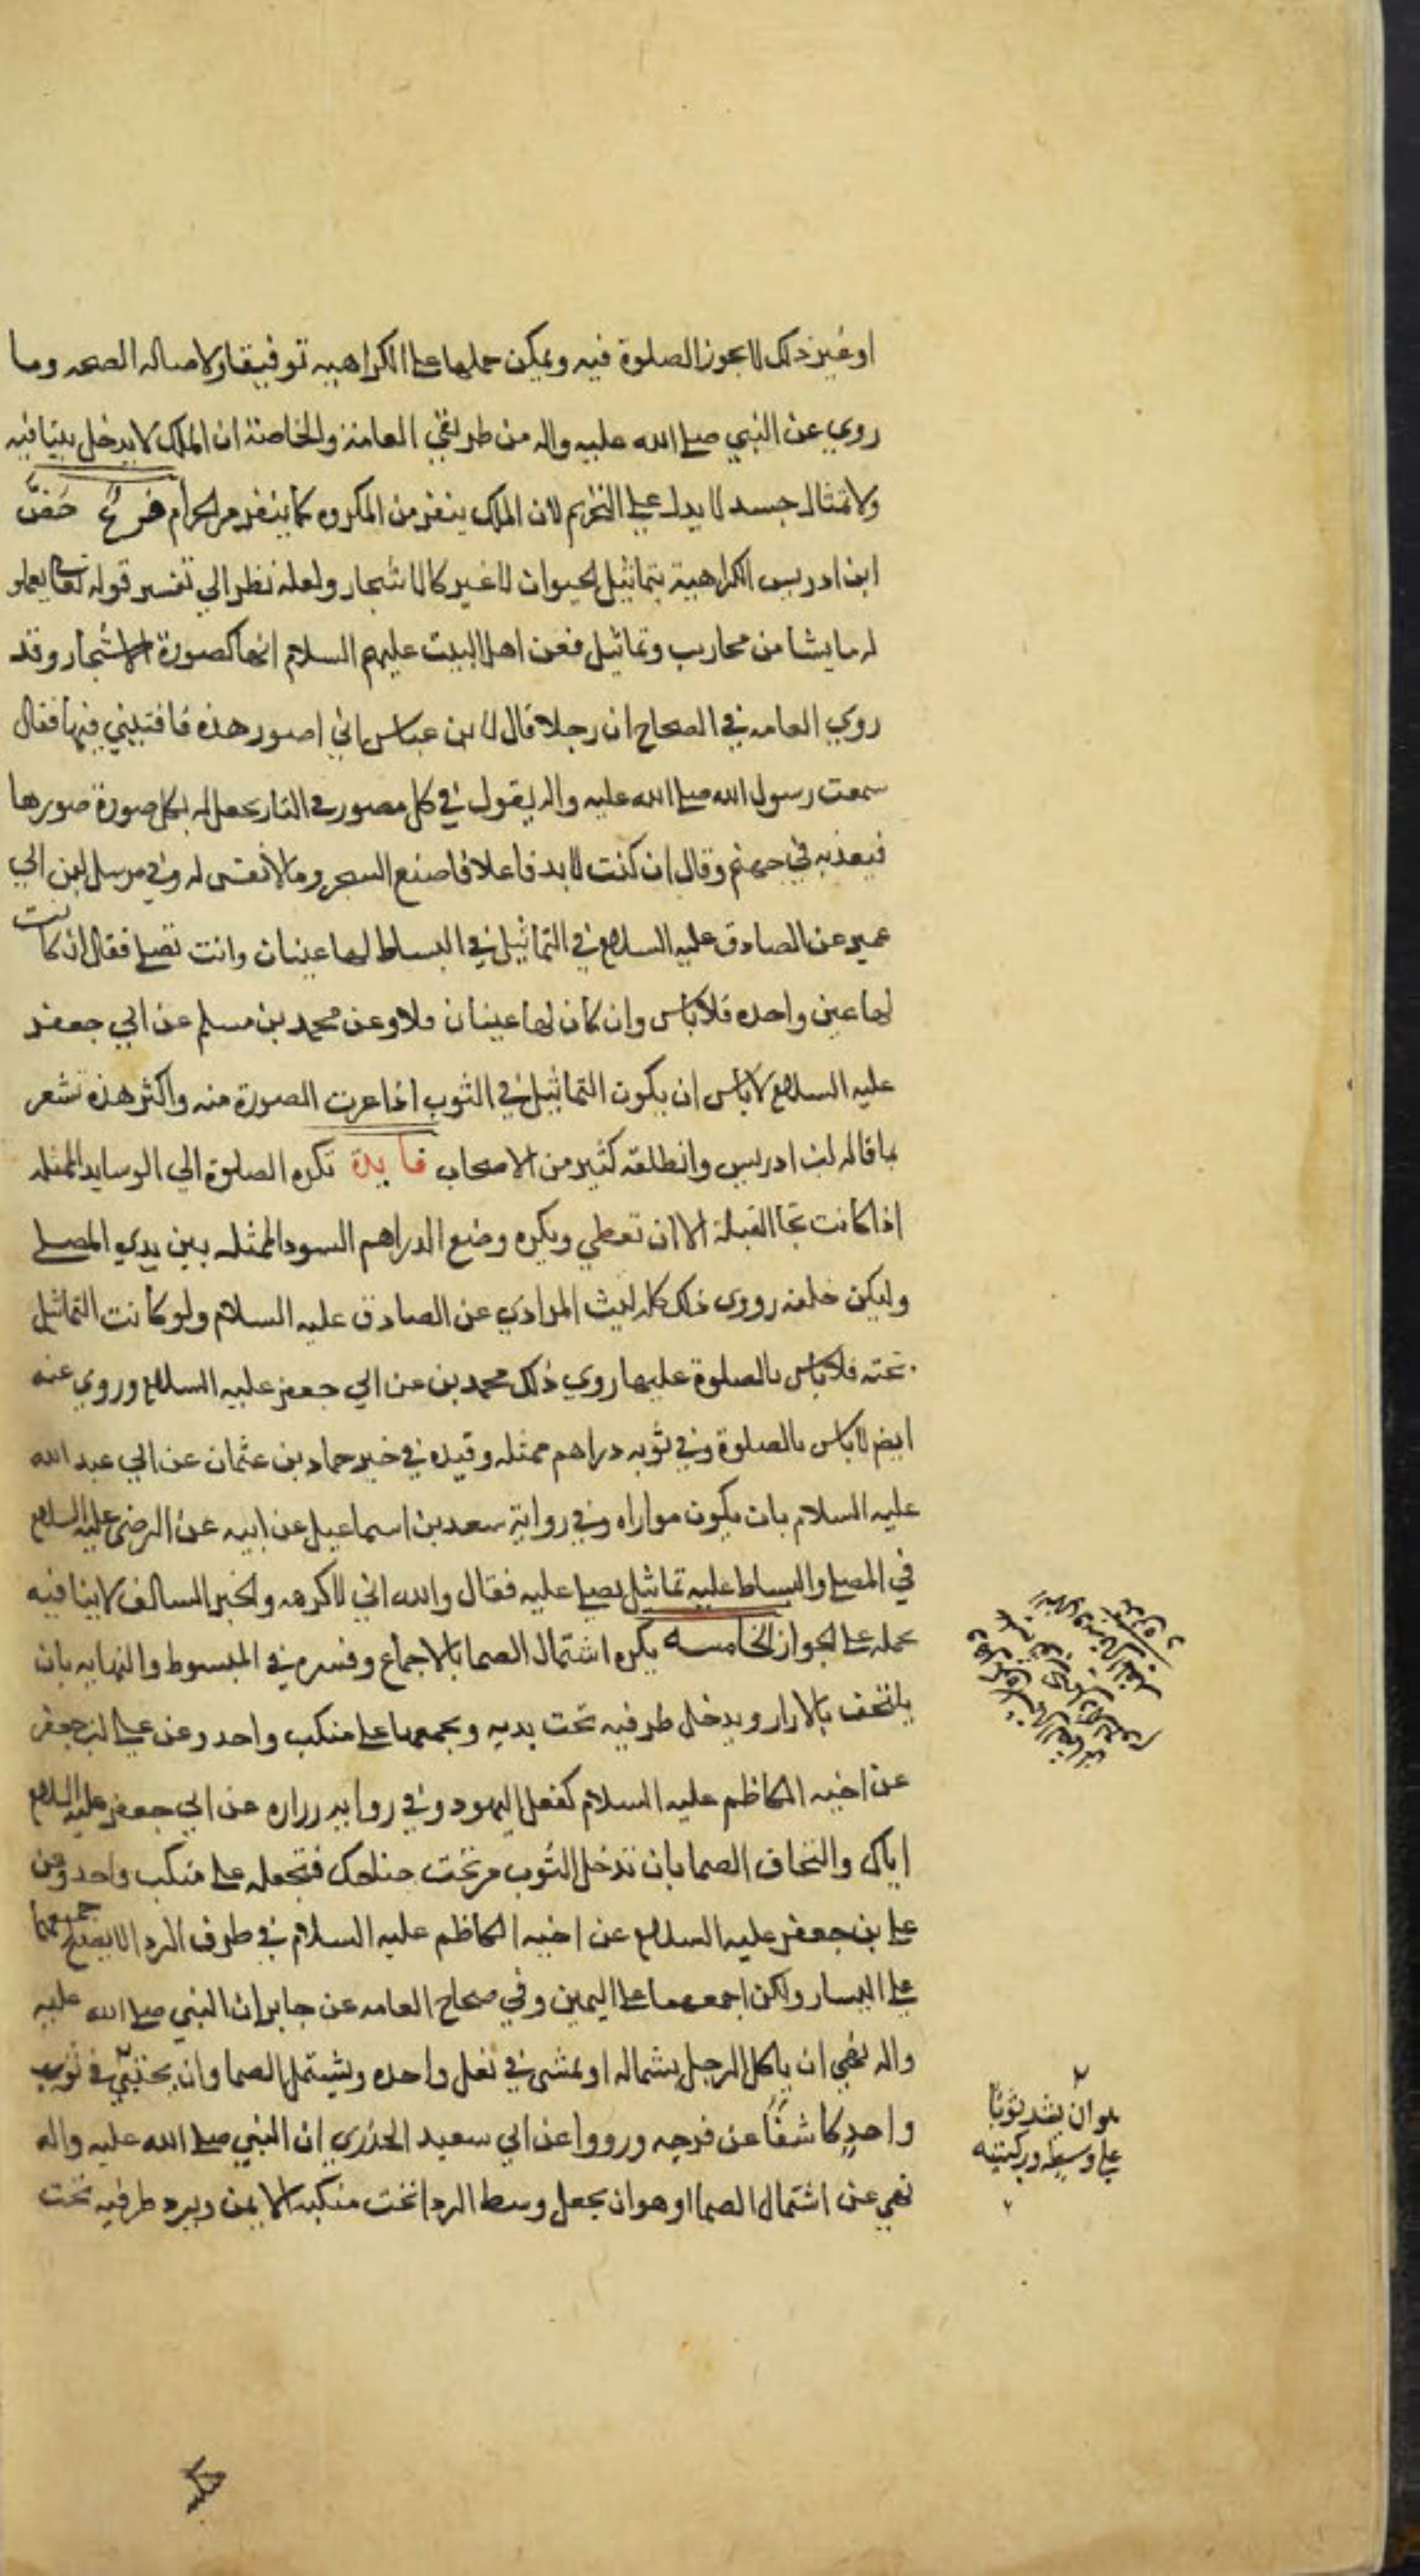 او غير ذلك لا يجوز الصلوة فيه ويمكن حملها على الكراهيه توفيقا ولاصاله الصحه وما
روي عن النبي صلى الله عليه واله من طريقي العامة والخاصة ان الملك لا يدخل بيتا فيه
ولا تمثال جسد لا يدل على التحريم لان الملك ينفر من المكروه كما ينفر من الحرام فرع خص
ابن ادريس الكراهية بتماثيل الحيوان لا غير كالاشجار ولعله نظر الي تفسير قوله تعالى يعملو
له ما يشا من محاريب وتماثيل فعن اهل البيت عليهم السلام انها كصورة الاشجار وقد
روي العامه في الصحاح ان رجلا قال لابن عباس اني اصور هذه فافتيني فيها فقال
سمعت رسول الله صلى الله عليه واله يقول في كل مصور في النار يجعل له بكل صورة صورها
فيعذبه في جهنم وقال ان كنت لا بد فاعلا فاصنع الشجر وما لا نفس له وفي مرسل ابن ابي
عمير عن الصادق عليه السلام في التماثيل في البساط لها عينان وانت تصلي فقال ان كانت
لها عين واحده فلا باس وان كان لها عينان فلا وعن محمد بن مسلم عن ابي جعفر
عليه السلام لا باس ان يكون التماثيل في الثوب اذا غيرت الصورة منه واكثر هذه تشعر
بما قاله ابن ادريس وانطلقه كثير من الاصحاب فايدة تكره الصلوة الي الوسايد الممثله
اذا كانت تجا القبلة الا ان تغطي ويكره وضع الدراهم السود الممثله بين يدي المصلي
وليكن خلفه روى ذلك كله ليث المرادي عن الصادق عليه السلام ولو كانت التماثيل
تحته فلا باس بالصلوة عليها روي ذلك محمد بن عن ابي جعفر عليه السلام وروي عنه
ايضا لا باس بالصلوة وفي ثوبه دراهم ممثله وقيده في خبر حماد بن عثمان عن ابي عبد الله
عليه السلام بان يكون مواراه وفي رواية سعد بن اسماعيل عن ابيه عن الرضي عليه السلام
في المصلي والبساط عليه تماثيل يصلي عليه فقال والله اني لاكرهه والخبر السالف لا ينافيه
بحمله على الجواز الخامسه يكره اشتمال الصما بالاجماع وفسره في المبسوط والنهايه بان
يلتحف بالازار ويدخل طرفيه تحت يديه ويجمعهما على منكب واحد وعن علي ابن جعفر
عن اخيه الكاظم عليه السلام كفعل اليهود وفي روايه زراره عن ابي جعفر عليه السلام
اياك والتحاف الصما بان تدخل الثوب من تحت جناحك فتجعله على منكب واحد وعن
علي بن جعفر عليه السلام عن اخيه الكاظم عليه السلام في طرف الردا لا يصلح جمعهما
على اليسار ولكن اجمعهما على اليمين وفي صحاح العامه عن جابر ان النبي صلى الله عليه
واله نهي ان ياكل الرجل بشماله او يمشى في نعل واحده ويشتمل الصما وان يحتبي في ثوب
واحد كاشفا عن فرجه ورووا عن ابي سعيد الخدري ان النبي صلى الله عليه واله
نهي عن اشتمال الصما وهو ان يجعل وسط الردا تحت منكبه الايمن ويرد طرفيه تحت
هو ان يشد ثوبا
على وسطه وركبتيه